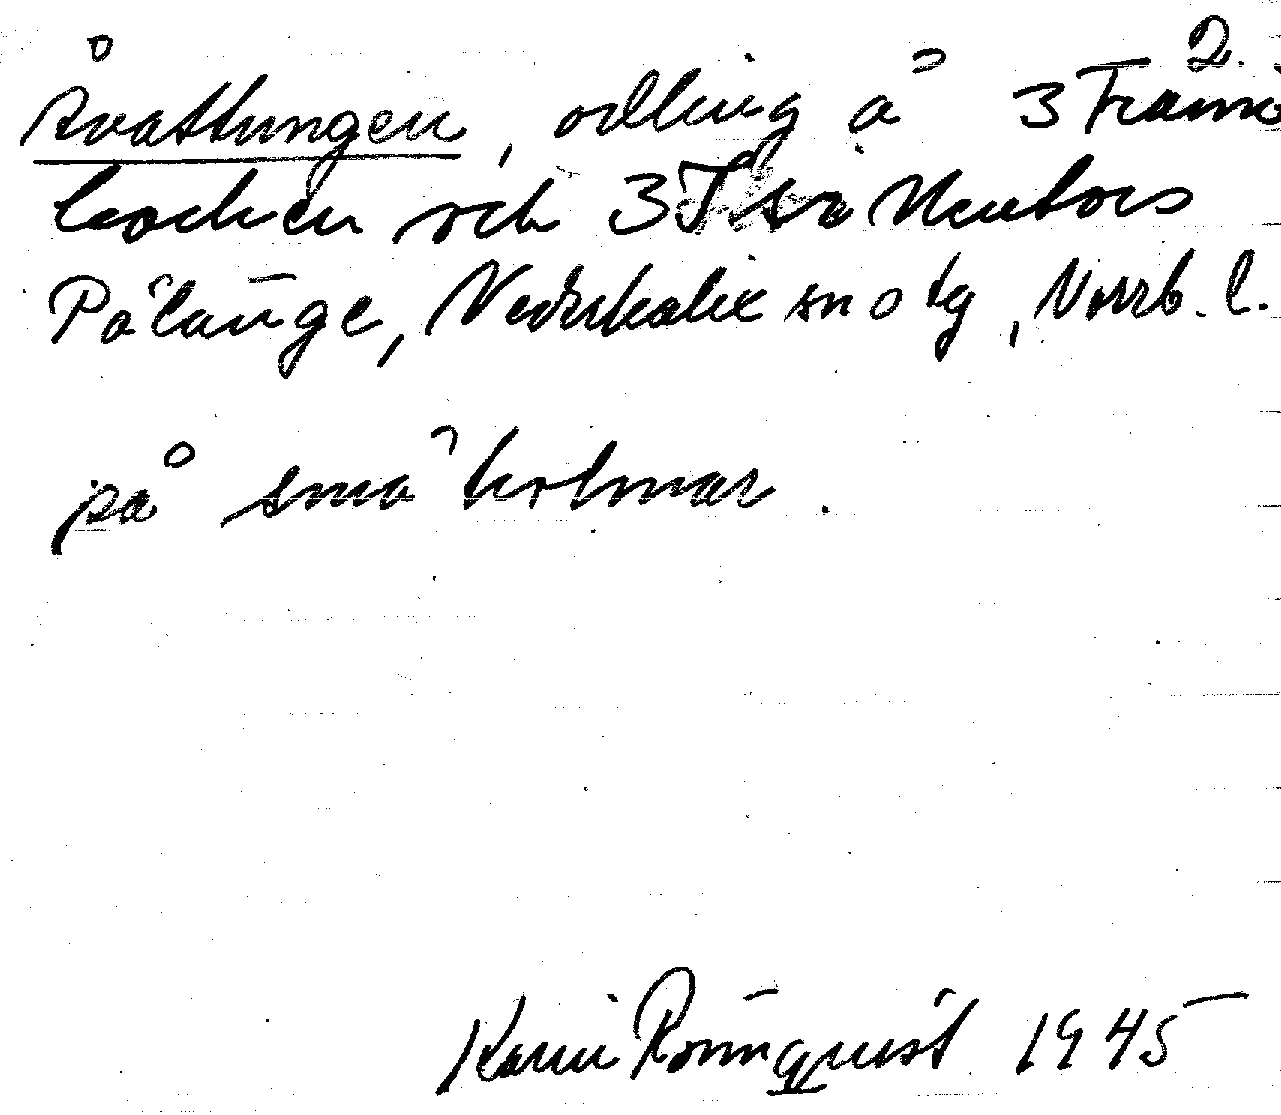 2.
Åvattungen, odling å 3 Framö
backen och 3 T

Pålänge, Nederkalix sn o tg, Norrb. l.
på små holmar.
Karin Rönnquist 1945